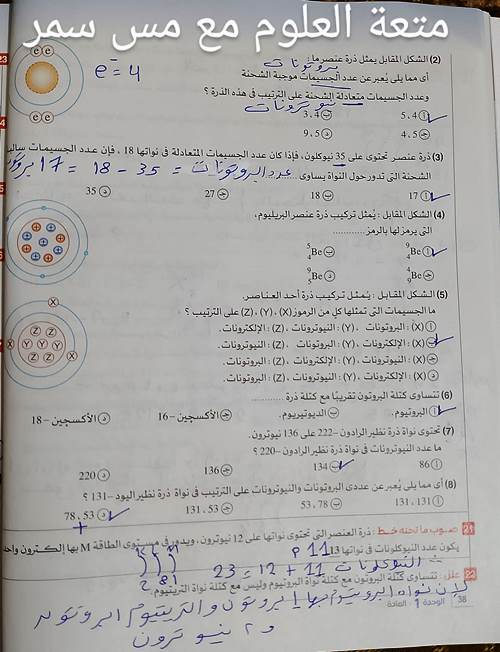 متعة العلوم مع مس سمر
(2) الشكل المقابل يمثل ذرة عنصر ما :
بروتونات
e⁻ = 4
أى مما يلى يُعبر عن عدد الجسيمات موجبة الشحنة
وعدد الجسيمات متعادلة الشحنة على الترتيب فى هذه الذرة ؟
نيوترونات
أ 4 ، 5 ب 4 ، 3
ج 5 ، 4 د 5 ، 9
(3) ذرة عنصر تحتوى على 35 نيوكلون، فإذا كان عدد الجسيمات المتعادلة فى نواتها 18 ، فإن عدد الجسيمات
الشحنة التى تدور حول النواة يساوى
عدد البروتونات = 35 - 18 = 17
أ 17 ب 18 ج 27 د 35
(4) الشكل المقابل : يُمثل تركيب ذرة عنصر البريليوم،
التى يرمز لها بالرمز ............
أ ⁹₄Be ب ⁵₄Be
ج ⁴₉Be د ⁹₅Be
(5) الشكل المقابل : يُمثل تركيب ذرة أحد العناصر.
ما الجسيمات التى تمثلها كل من الرموز (X) ، (Y) ، (Z) على الترتيب ؟
أ (X) : البروتونات ، (Y) : النيوترونات ، (Z) : الإلكترونات.
ب (X) : الإلكترونات ، (Y) : البروتونات ، (Z) : النيوترونات.
ج (X) : النيوترونات ، (Y) : الإلكترونات ، (Z) : البروتونات.
د (X) : الإلكترونات ، (Y) : النيوترونات ، (Z) : البروتونات.
(6) تتساوى كتلة البروتون تقريبًا مع كتلة ذرة ............
أ البروتيوم. ب الديوتيريوم. ج الأكسچين –16 د الأكسچين –18
(7) تحتوى نواة ذرة نظير الرادون –222 على 136 نيوترون.
ما عدد النيوترونات فى نواة ذرة نظير الرادون –220 ؟
أ 86 ب 134 ج 136 د 220
(8) أى مما يلى يُعبر عن عددى البروتونات والنيوترونات على الترتيب فى نواة ذرة نظير اليود –131 ؟
أ 131 ، 131 ب 78 ، 53 ج 53 ، 131 د 53 ، 78
+
21 صوب ما تحته خط : ذرة العنصر التى تحتوى نواتها على 12 نيوترون، ويدور فى مستوى الطاقة M بها إلكترون واحد
يكون عدد النيوكلونات فى نواتها 13
P 11
النيوكلونات 11 + 12 = 23
2 8 1
22 علل : تتساوى كتلة البروتون مع كتلة نواة البروتيوم وليس مع كتلة نواة التريتيوم.
لأن نواة البروتيوم بها ابروتون والتريتيوم ابروتون
و ٢ نيوترون
38 الوحدة 1 : المادة